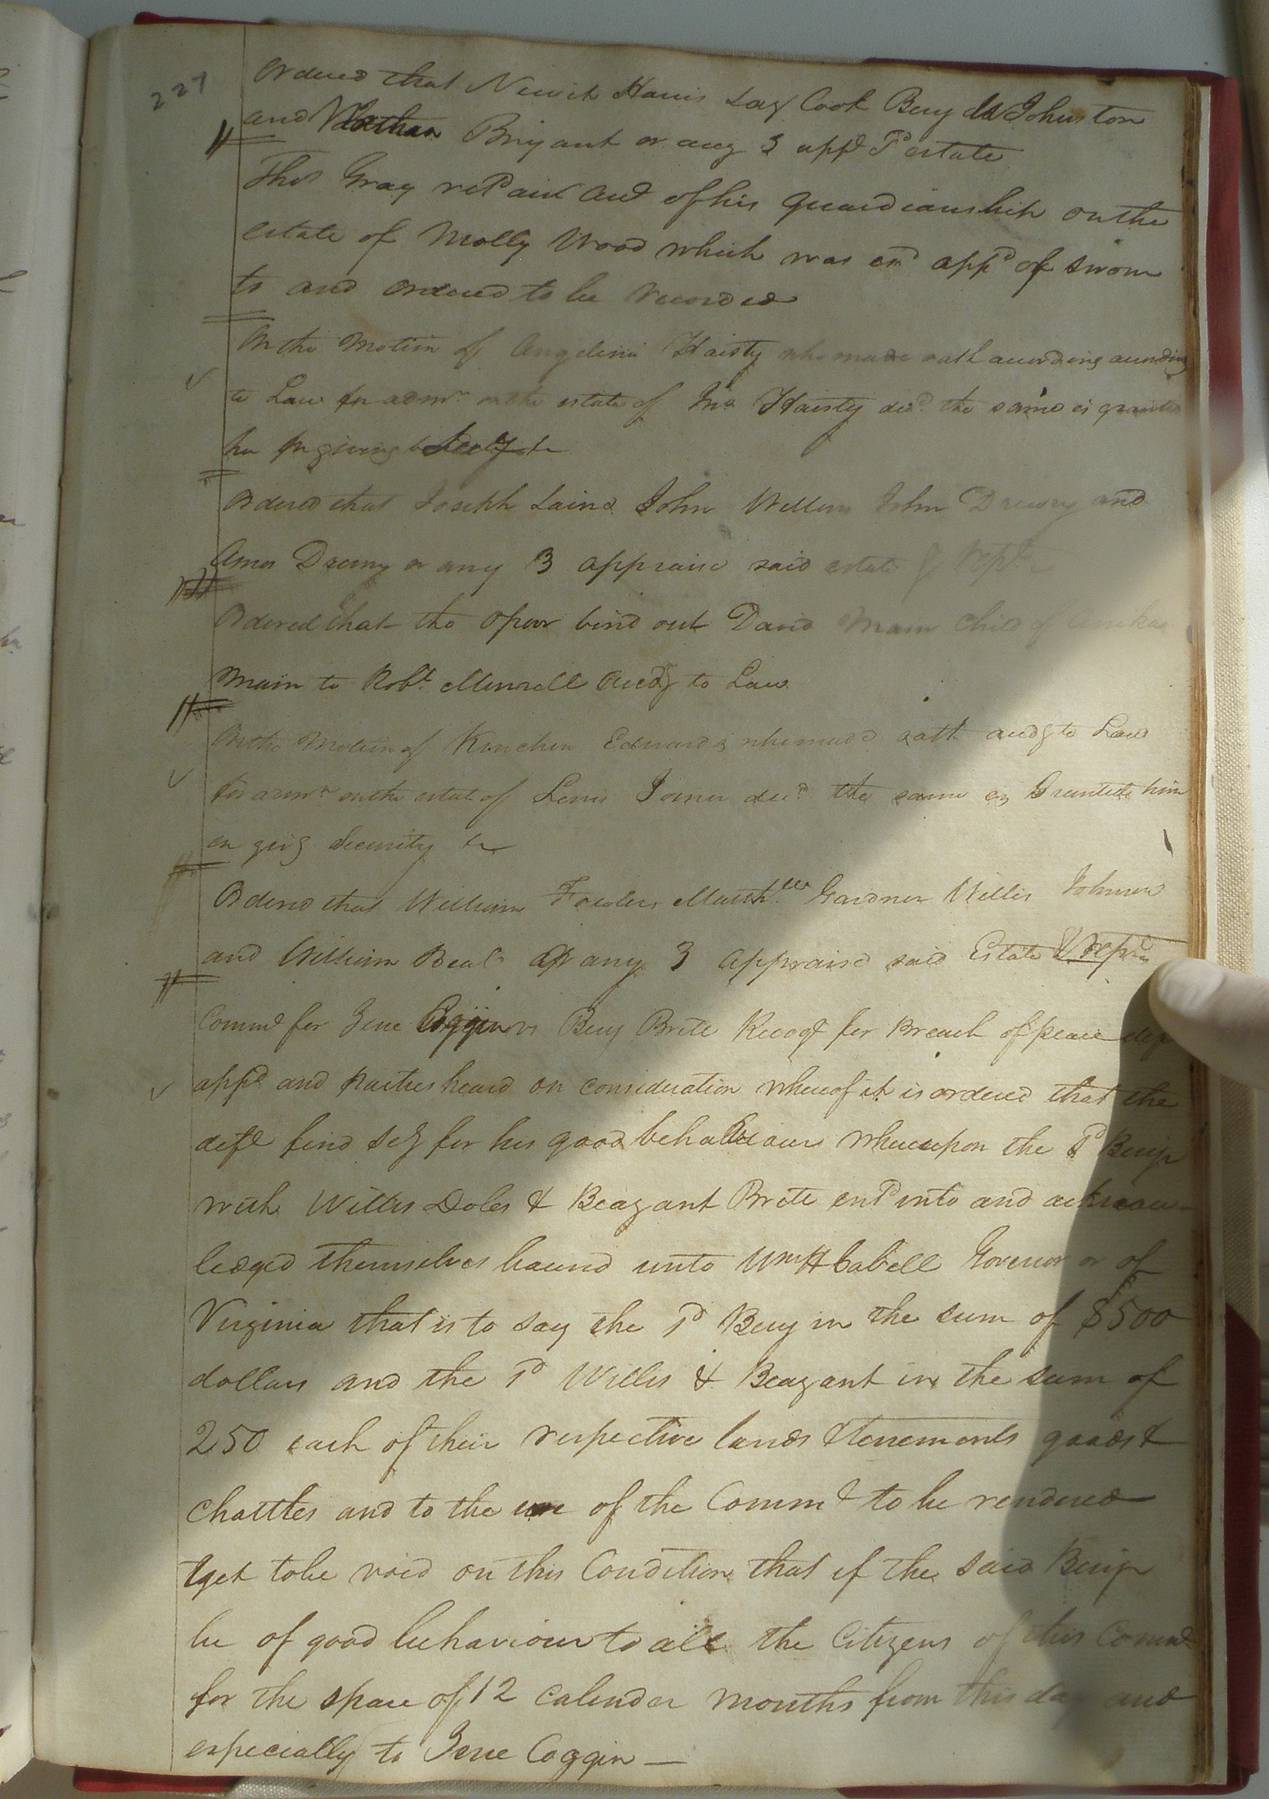 227
Ordered that Newit Harris Lazs Cook Benj Johnston
and Nathan Briyant or any 3 appe Sd estate
Thos Gray retd an Acct of his guardianship on the
estate of Molly Wood which was exd appd of sworn
to and ordered to be recorded
On the Motion of Angelina Haisty who made oath according according
to Law for admr on the estate of Haisty decd the same is granted
her on giving Secy &c
Ordered that Joseph Laine John Wellons John Drewry and
Amos Drewry or any 3 appraise said estate & rept
Ordered that the Opoor bind out David Main Child of
Main to Robt Murrell Accdg to Law
On the Motion of Kinchen Edwards who made oath accdg to Law
for admr on the estate of Lewis Joiner decd the same is Granted him
on givg Security &c
Ordered that William Fowler Gardner Willis Johnson
and William Beal or any 3 appraise said Estate & rept
Commd for Jene Coggin vs Benj Brite Recogd for Breach of peace def
appd and parties heard on consideration whereof it is ordered that the
deft find Scy for his good behaviour whereupon the Sd Benja
with Willis Doles & Beazant Brite entd into and acknow-
ledged themselves bound unto Wm H Cabell Governor or of
Virginia that is to say the Sd Benj in the sum of $500
dollars and the Sd Willis & Beazant in the sum of
250 each of their respective lands & tenements goods &
Chattles and to the use of the Commd to be rendered
yet to be void on this Condition that if the said Benja
be of good behaviour to all the Citizens of this Commd
for the space of 12 calender months from this day and
especially to Jene Coggin —